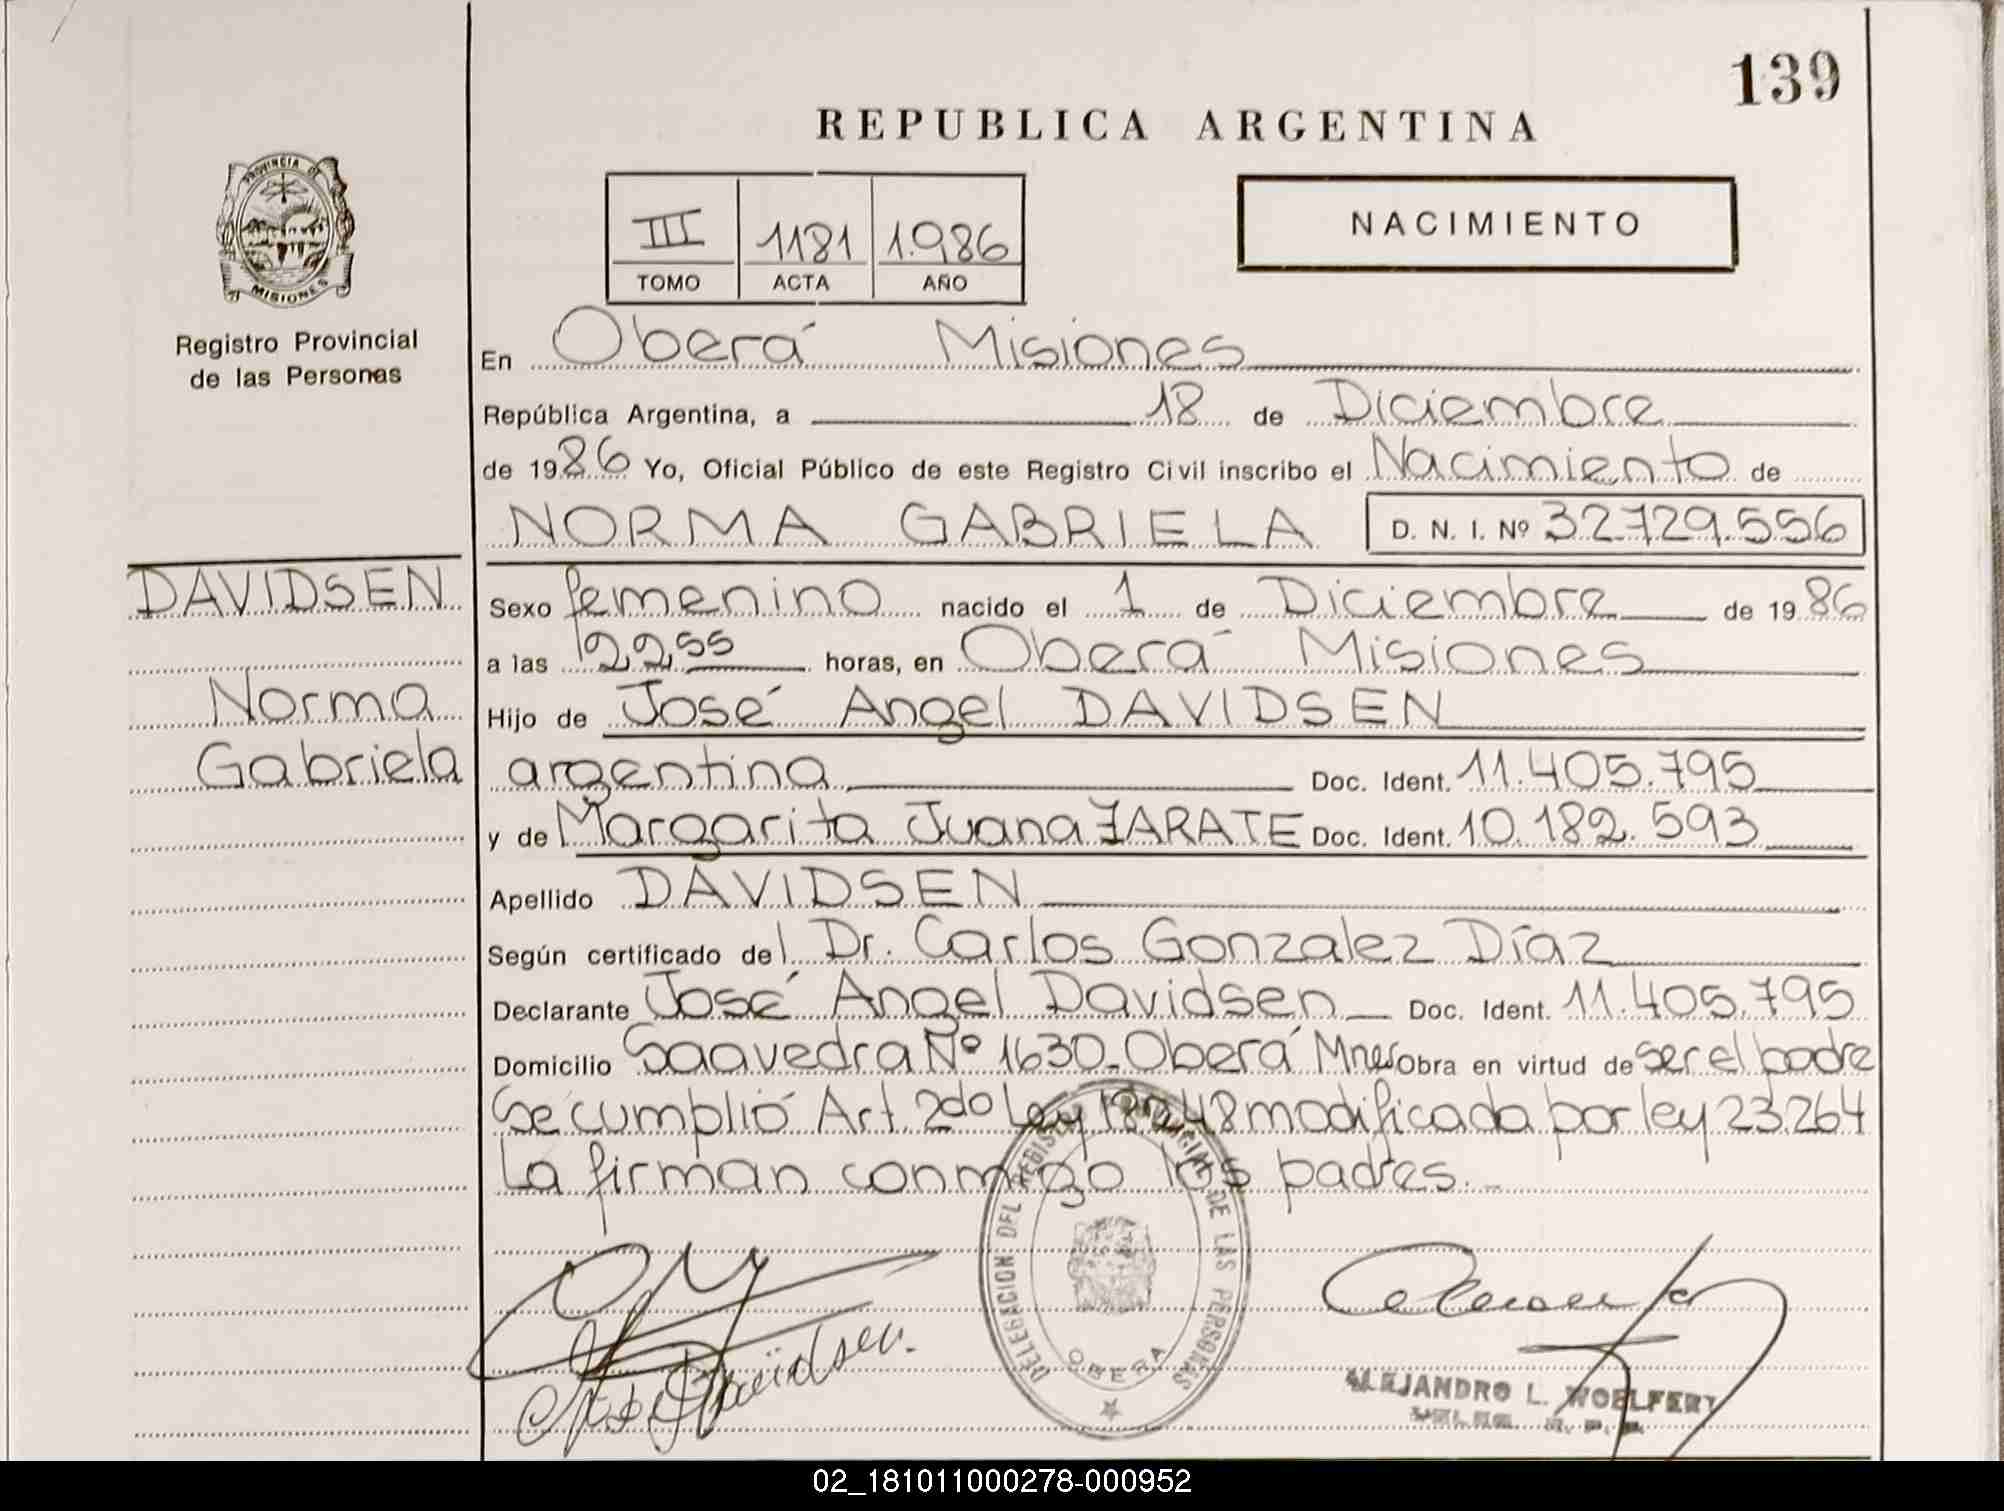 139
REPUBLICA ARGENTINA
PROVINCIA DE
MISIONES
Registro Provincial
de las Personas
III 1181 1.986
TOMO ACTA AÑO
NACIMIENTO
En Oberá Misiones
República Argentina, a 18 de Diciembre
de 1986 Yo, Oficial Público de este Registro Civil inscribo el Nacimiento de
NORMA GABRIELA D. N. I. Nº 32.729.556
DAVIDSEN
Norma
Gabriela
Sexo femenino nacido el 1 de Diciembre de 1986
a las 22,55 horas, en Oberá Misiones
Hijo de José Angel DAVIDSEN
argentina Doc. Ident. 11.405.795
y de Margarita Juana ZARATE Doc. Ident. 10.182.593
Apellido DAVIDSEN
Según certificado del Dr. Carlos Gonzalez Díaz
Declarante José Angel Davidsen Doc. Ident. 11.405.795
Domicilio Saavedra Nº 1630-Oberá Mnes Obra en virtud de ser el padre
Se cumplió Art. 2do Ley 18248 modificada por ley 23.264
La firman conmigo los padres.-
DELEGACION DEL REGISTRO PROVINCIAL DE LAS PERSONAS
OBERA
Davidsen.
ALEJANDRO L. WOELFERT
02_181011000278-000952